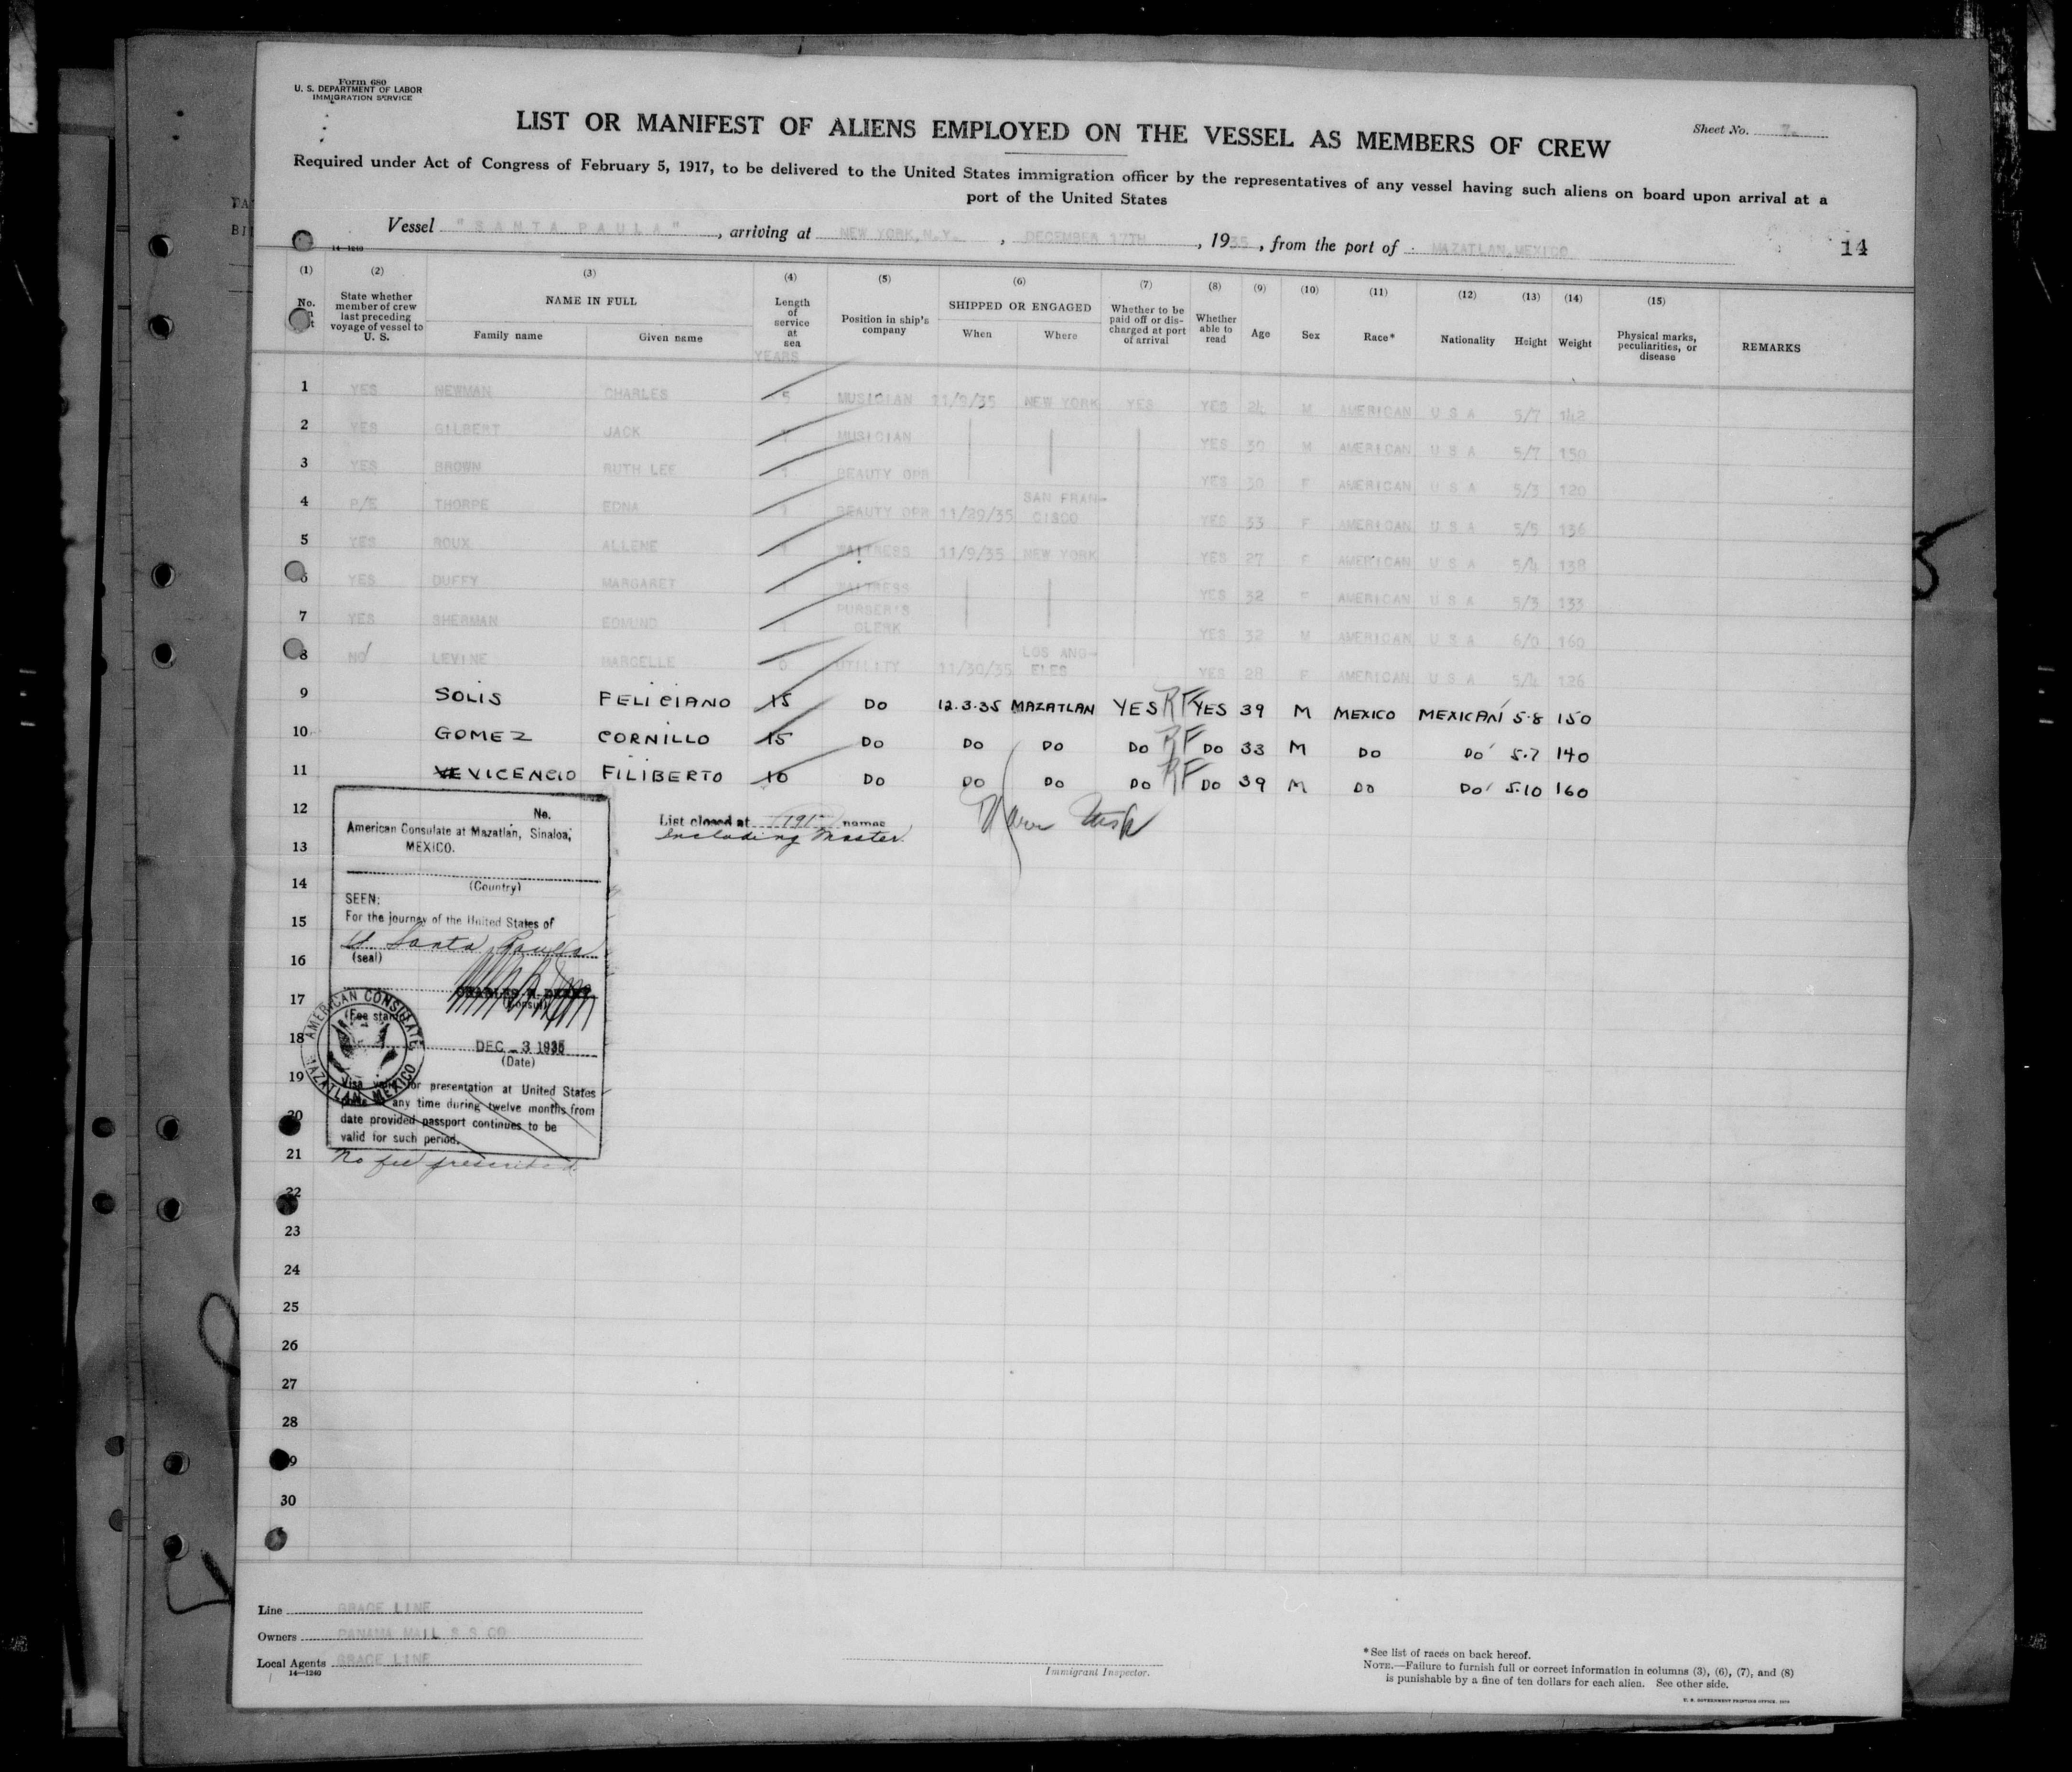 Form 680
U. S. DEPARTMENT OF LABOR
IMMIGRATION SERVICE
Sheet No.
LIST OR MANIFEST OF ALIENS EMPLOYED ON THE VESSEL AS MEMBERS OF CREW
Required under Act of Congress of February 5, 1917, to be delivered to the United States immigration officer by the representatives of any vessel having such aliens on board upon arrival at a
port of the United States
Vessel "SANTA PAULA", arriving at NEW YORK, N.Y., DECEMBER 17TH, 1935, from the port of MAZATLAN, MEXICO
14
14—1240
(1) (2) (3) (4) (5) (6) (7) (8) (9) (10) (11) (12) (13) (14) (15)
No.
State whether member of crew last preceding voyage of vessel to U. S.
NAME IN FULL
Family name Given name
Length of service at sea
YEARS
Position in ship's company
SHIPPED OR ENGAGED
When Where
Whether to be paid off or discharged at port of arrival
Whether able to read
Age Sex Race* Nationality Height Weight
Physical marks, peculiarities, or disease
REMARKS
1 YES NEWMAN CHARLES 5 MUSICIAN 11/9/35 NEW YORK YES YES 24 M AMERICAN U S A 5/7 142
2 YES GILBERT JACK MUSICIAN YES 30 M AMERICAN U S A 5/7 150
3 YES BROWN RUTH LEE 1 BEAUTY OPR YES 30 F AMERICAN U S A 5/3 120
4 P/E THORPE EDNA 1 BEAUTY OPR 11/29/35 SAN FRAN-CISCO YES 33 F AMERICAN U S A 5/5 136
5 YES ROUX ALLENE 1 WAITRESS 11/9/35 NEW YORK YES 27 F AMERICAN U S A 5/4 138
6 YES DUFFY MARGARET 1 WAITRESS YES 32 F AMERICAN U S A 5/3 133
7 YES SHERMAN EDMUND 1 PURSER'S CLERK YES 32 M AMERICAN U S A 6/0 160
8 NO LEVINE MARCELLE 0 UTILITY 11/30/35 LOS ANG-ELES YES 28 F AMERICAN U S A 5/4 126
9 SOLIS FELICIANO 15 DO 12.3.35 MAZATLAN YES RF YES 39 M MEXICO MEXICAN 5.8 150
10 GOMEZ CORNILLO 15 DO DO DO DO RF DO 33 M DO DO 5.7 140
11 VEVICENCIO FILIBERTO 10 DO DO DO DO RF DO 39 M DO DO 5.10 160
12
List closed at 191 names
Including Master.
13
14
15
16
17
18
19
20
21
22
23
24
25
26
27
28
29
30
No.
American Consulate at Mazatlan, Sinaloa,
MEXICO.
(Country)
SEEN:
For the journey of the United States of
SS Santa Paula
(seal)
(Consul)
(Fee stamp)
AMERICAN CONSULATE MAZATLAN, MEXICO
DEC - 3 1935
(Date)
Visa valid for presentation at United States
ports at any time during twelve months from
date provided passport continues to be
valid for such period.
No fee prescribed
Line GRACE LINE
Owners PANAMA MAIL S S CO
Local Agents GRACE LINE
14—1240
Immigrant Inspector.
*See list of races on back hereof.
NOTE.—Failure to furnish full or correct information in columns (3), (6), (7), and (8)
is punishable by a fine of ten dollars for each alien. See other side.
U. S. GOVERNMENT PRINTING OFFICE